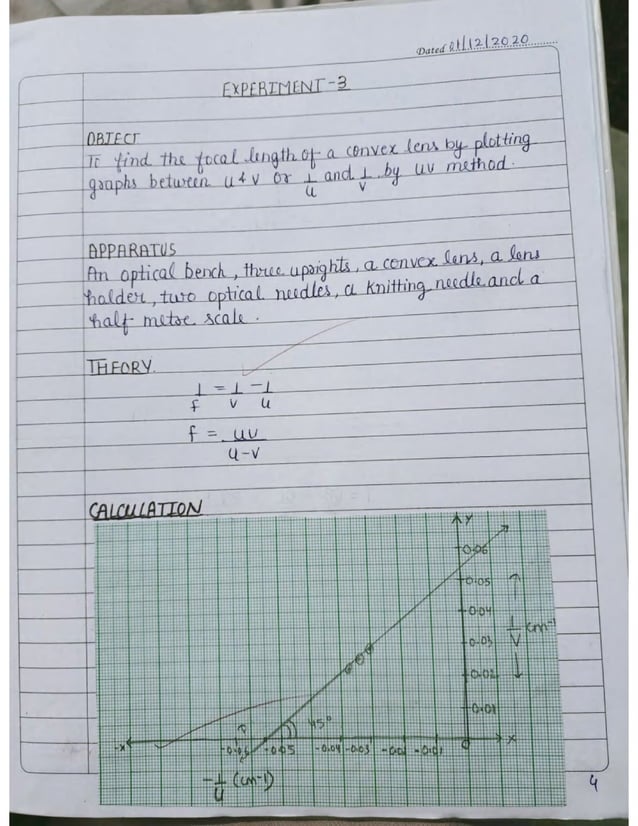 Dated 01/12/2020
EXPERIMENT-3
OBJECT
To find the focal length of a convex lens by plotting
graphs between u & v or 1/u and 1/v by uv method.
APPARATUS
An optical bench, three uprights, a convex lens, a lens
holder, two optical needles, a Knitting needle and a
half metre scale.
THEORY
1/f = 1/v - 1/u
f = uv/u-v
CALCULATION
Y
0.06
0.05
0.04
1/v cm-1
0.03
0.02
0.01
45°
-x
-0.06 -0.05 -0.04 -0.03 -0.02 -0.01 0 X
-1/u (cm-1)
4